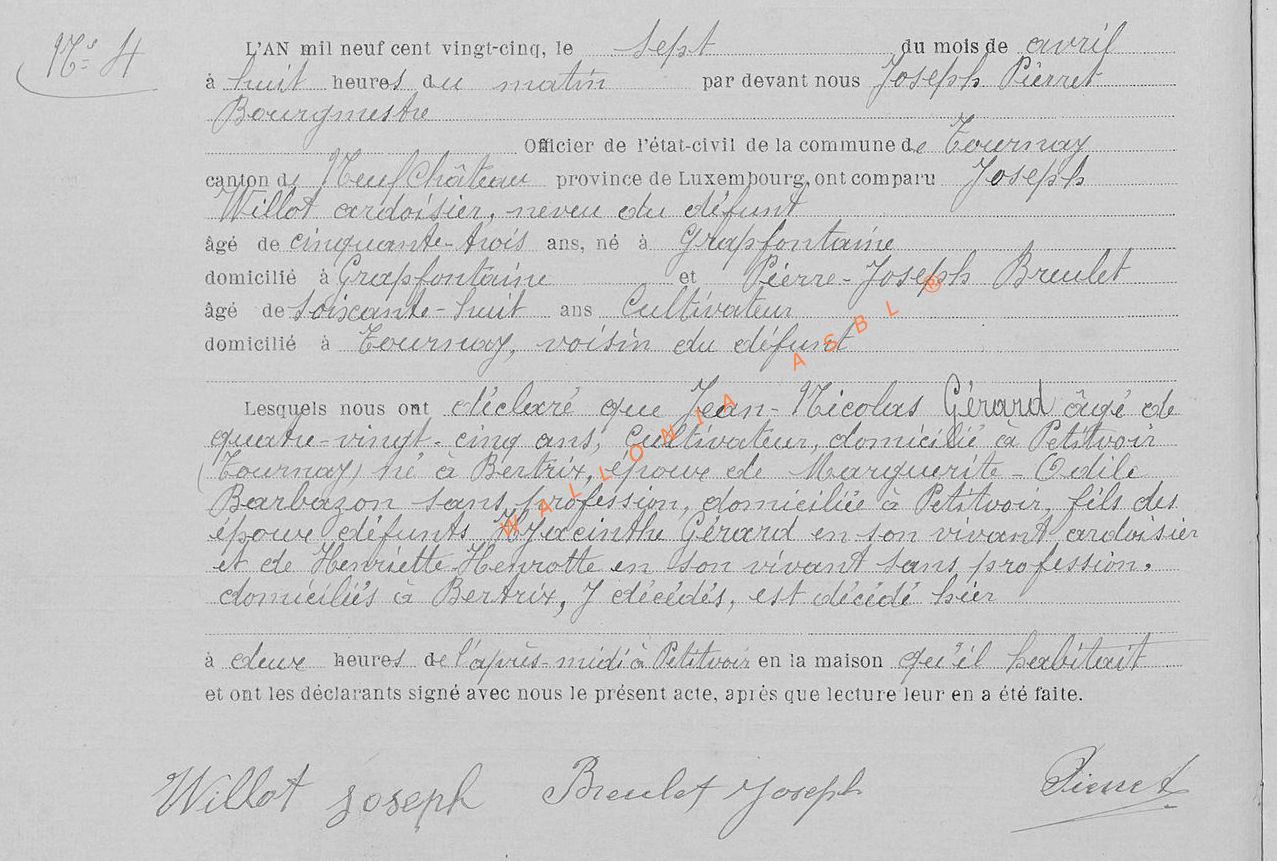 N° 4
L'AN mil neuf cent vingt-cinq, le sept du mois de avril
à huit heures du matin par devant nous Joseph Pierret
Bourgmestre
Officier de l'état-civil de la commune de Tournay
canton de Neufchâteau province de Luxembourg, ont comparu Joseph
Willot ardoisier, neveu du défunt
âgé de cinquante-trois ans, né à Grapfontaine
domicilié à Grapfontaine et Pierre-Joseph Breulet
âgé de soixante-huit ans Cultivateur
domicilié à Tournay, voisin du défunt
Lesquels nous ont déclaré que Jean-Nicolas Gérard âgé de
quatre-vingt-cinq ans, Cultivateur, domicilié à Petitvoir
(Tournay) né à Bertrix, époux de Marguerite-Odile
Barbazon sans profession, domiciliée à Petitvoir, fils des
époux défunts Hyacinthe Gérard en son vivant ardoisier
et de Henriette Henrotte en son vivant sans profession,
domiciliés à Bertrix, y décédés, est décédé hier
à deux heures de l'après-midi à Petitvoir en la maison qu'il habitait
et ont les déclarants signé avec nous le présent acte, après que lecture leur en a été faite.
Willot Joseph Breulet Joseph Pierret
WALLONIA ASBL ®